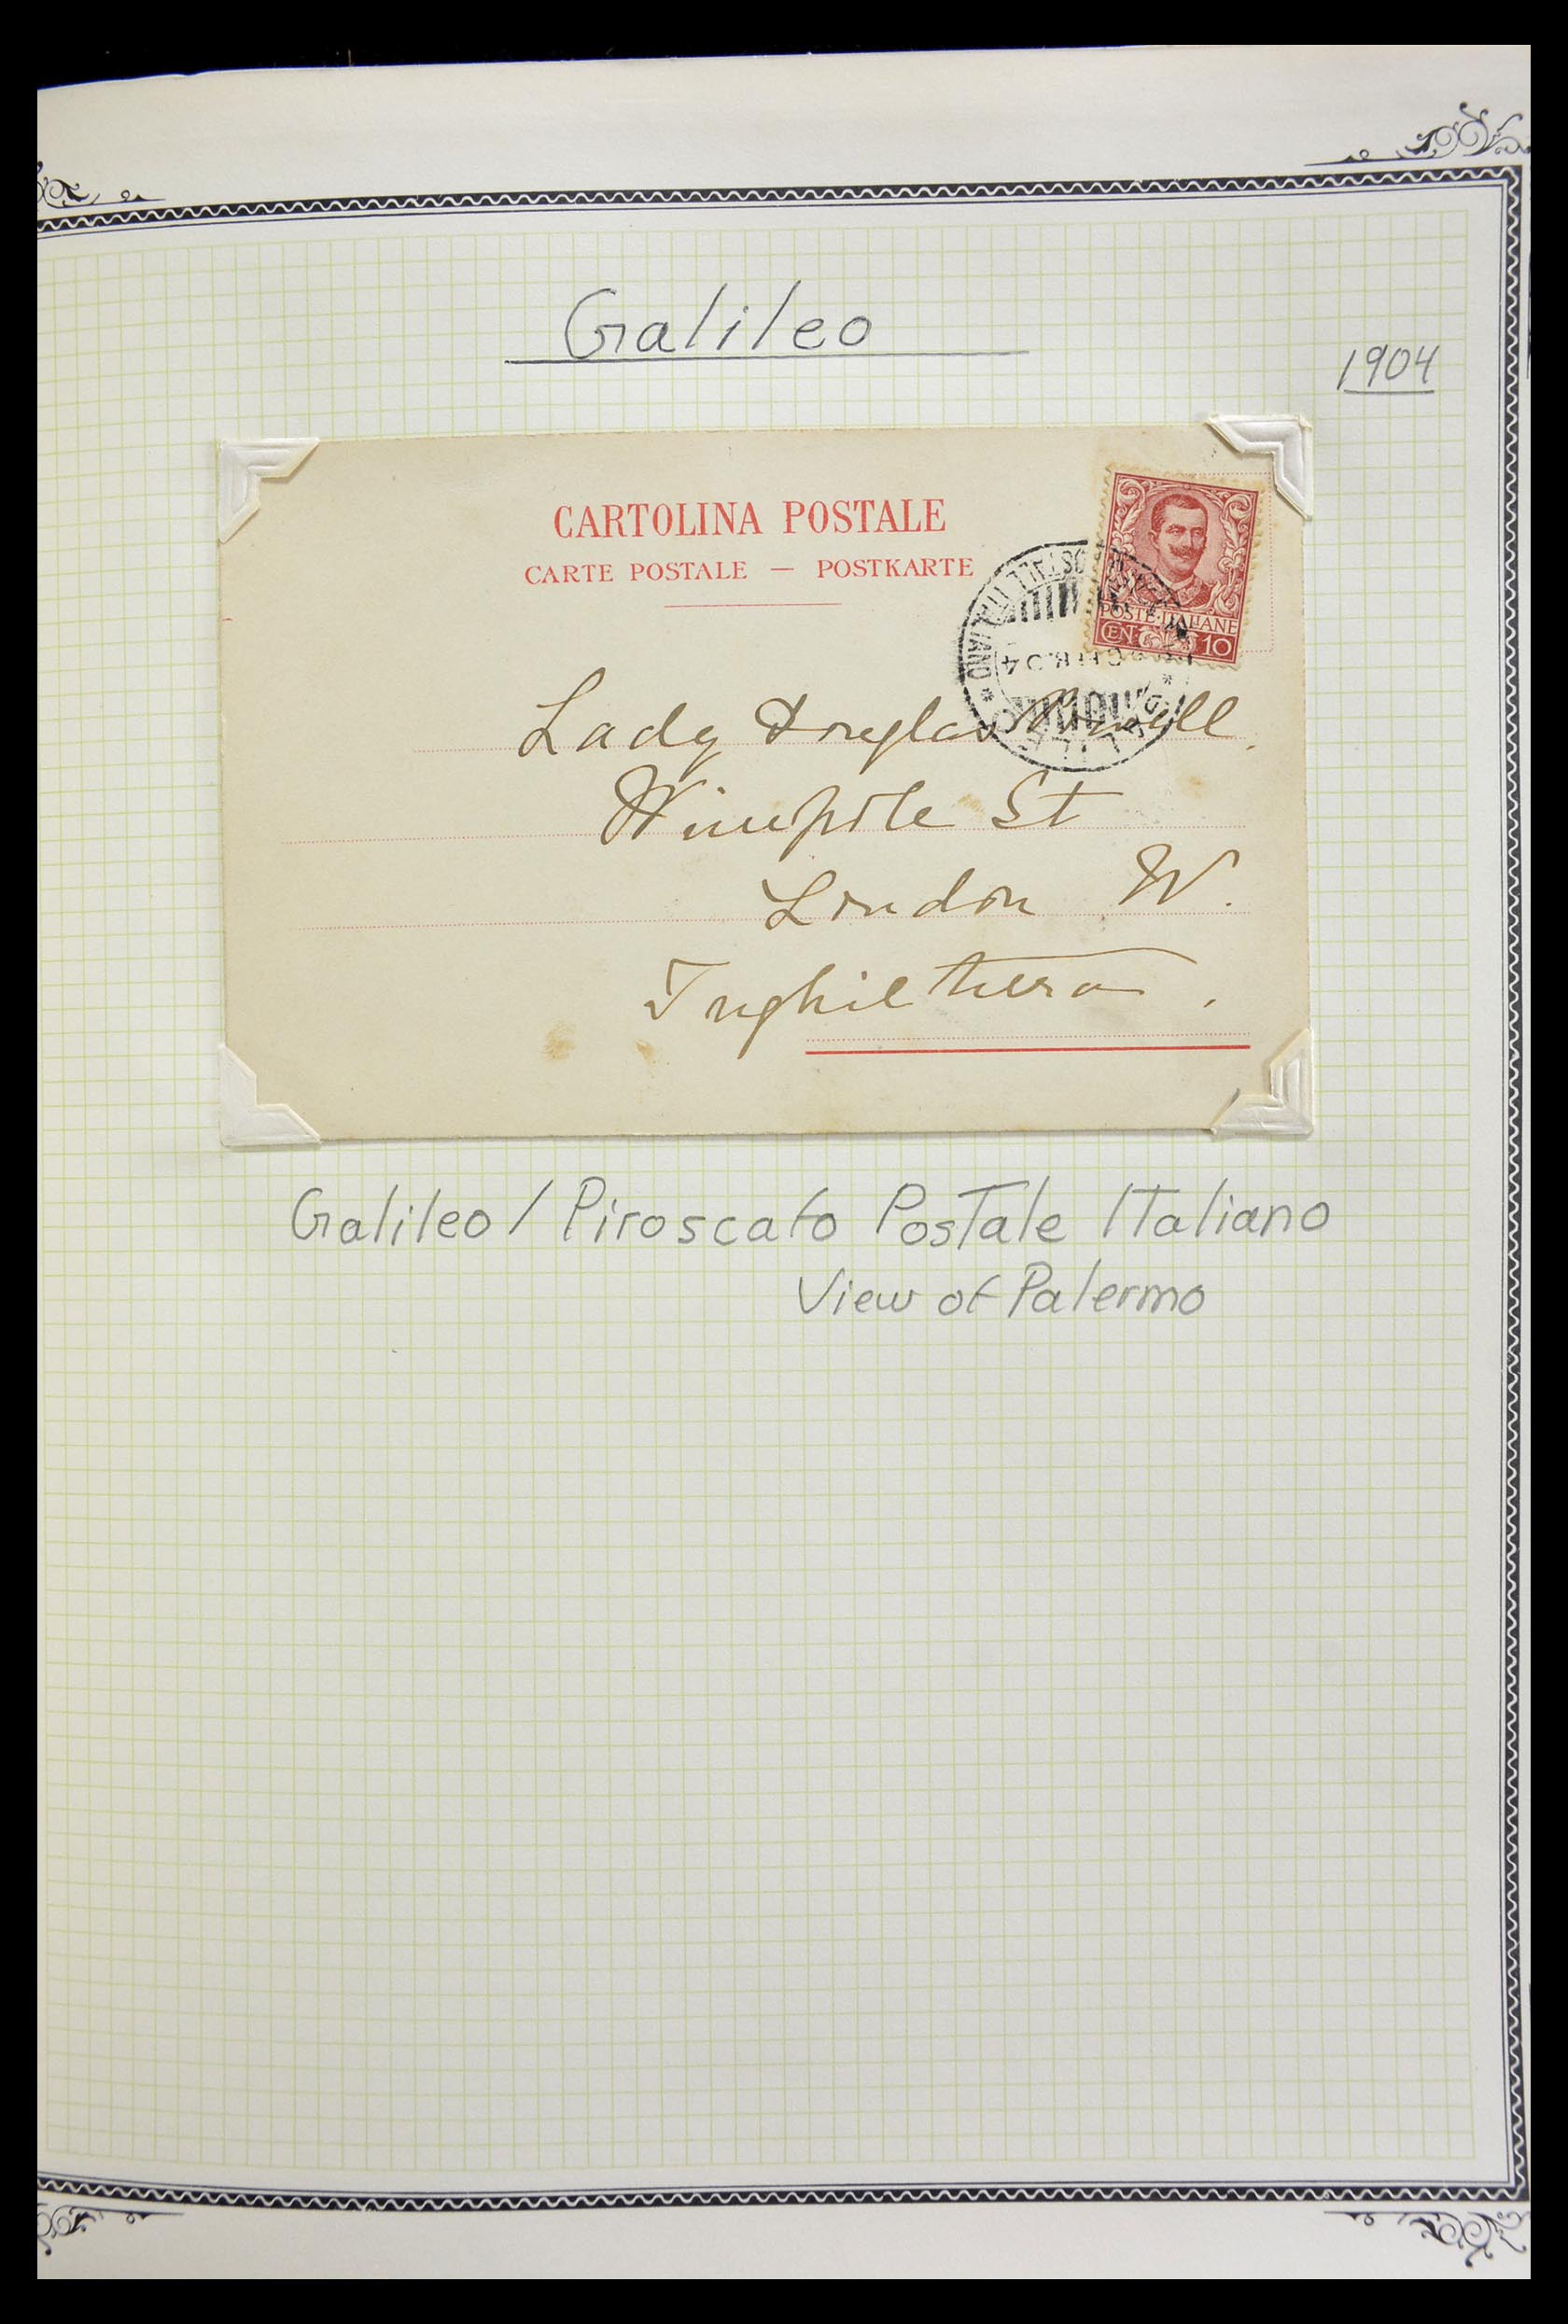 Galileo
1904
CARTOLINA POSTALE
CARTE POSTALE — POSTKARTE
POSTE·ITALIANE
CEN. 10
GALILEO
Lady Douglas Powell.
Wimpole St
London W.
Inghilterra.
Galileo / Piroscafo Postale Italiano
View of Palermo